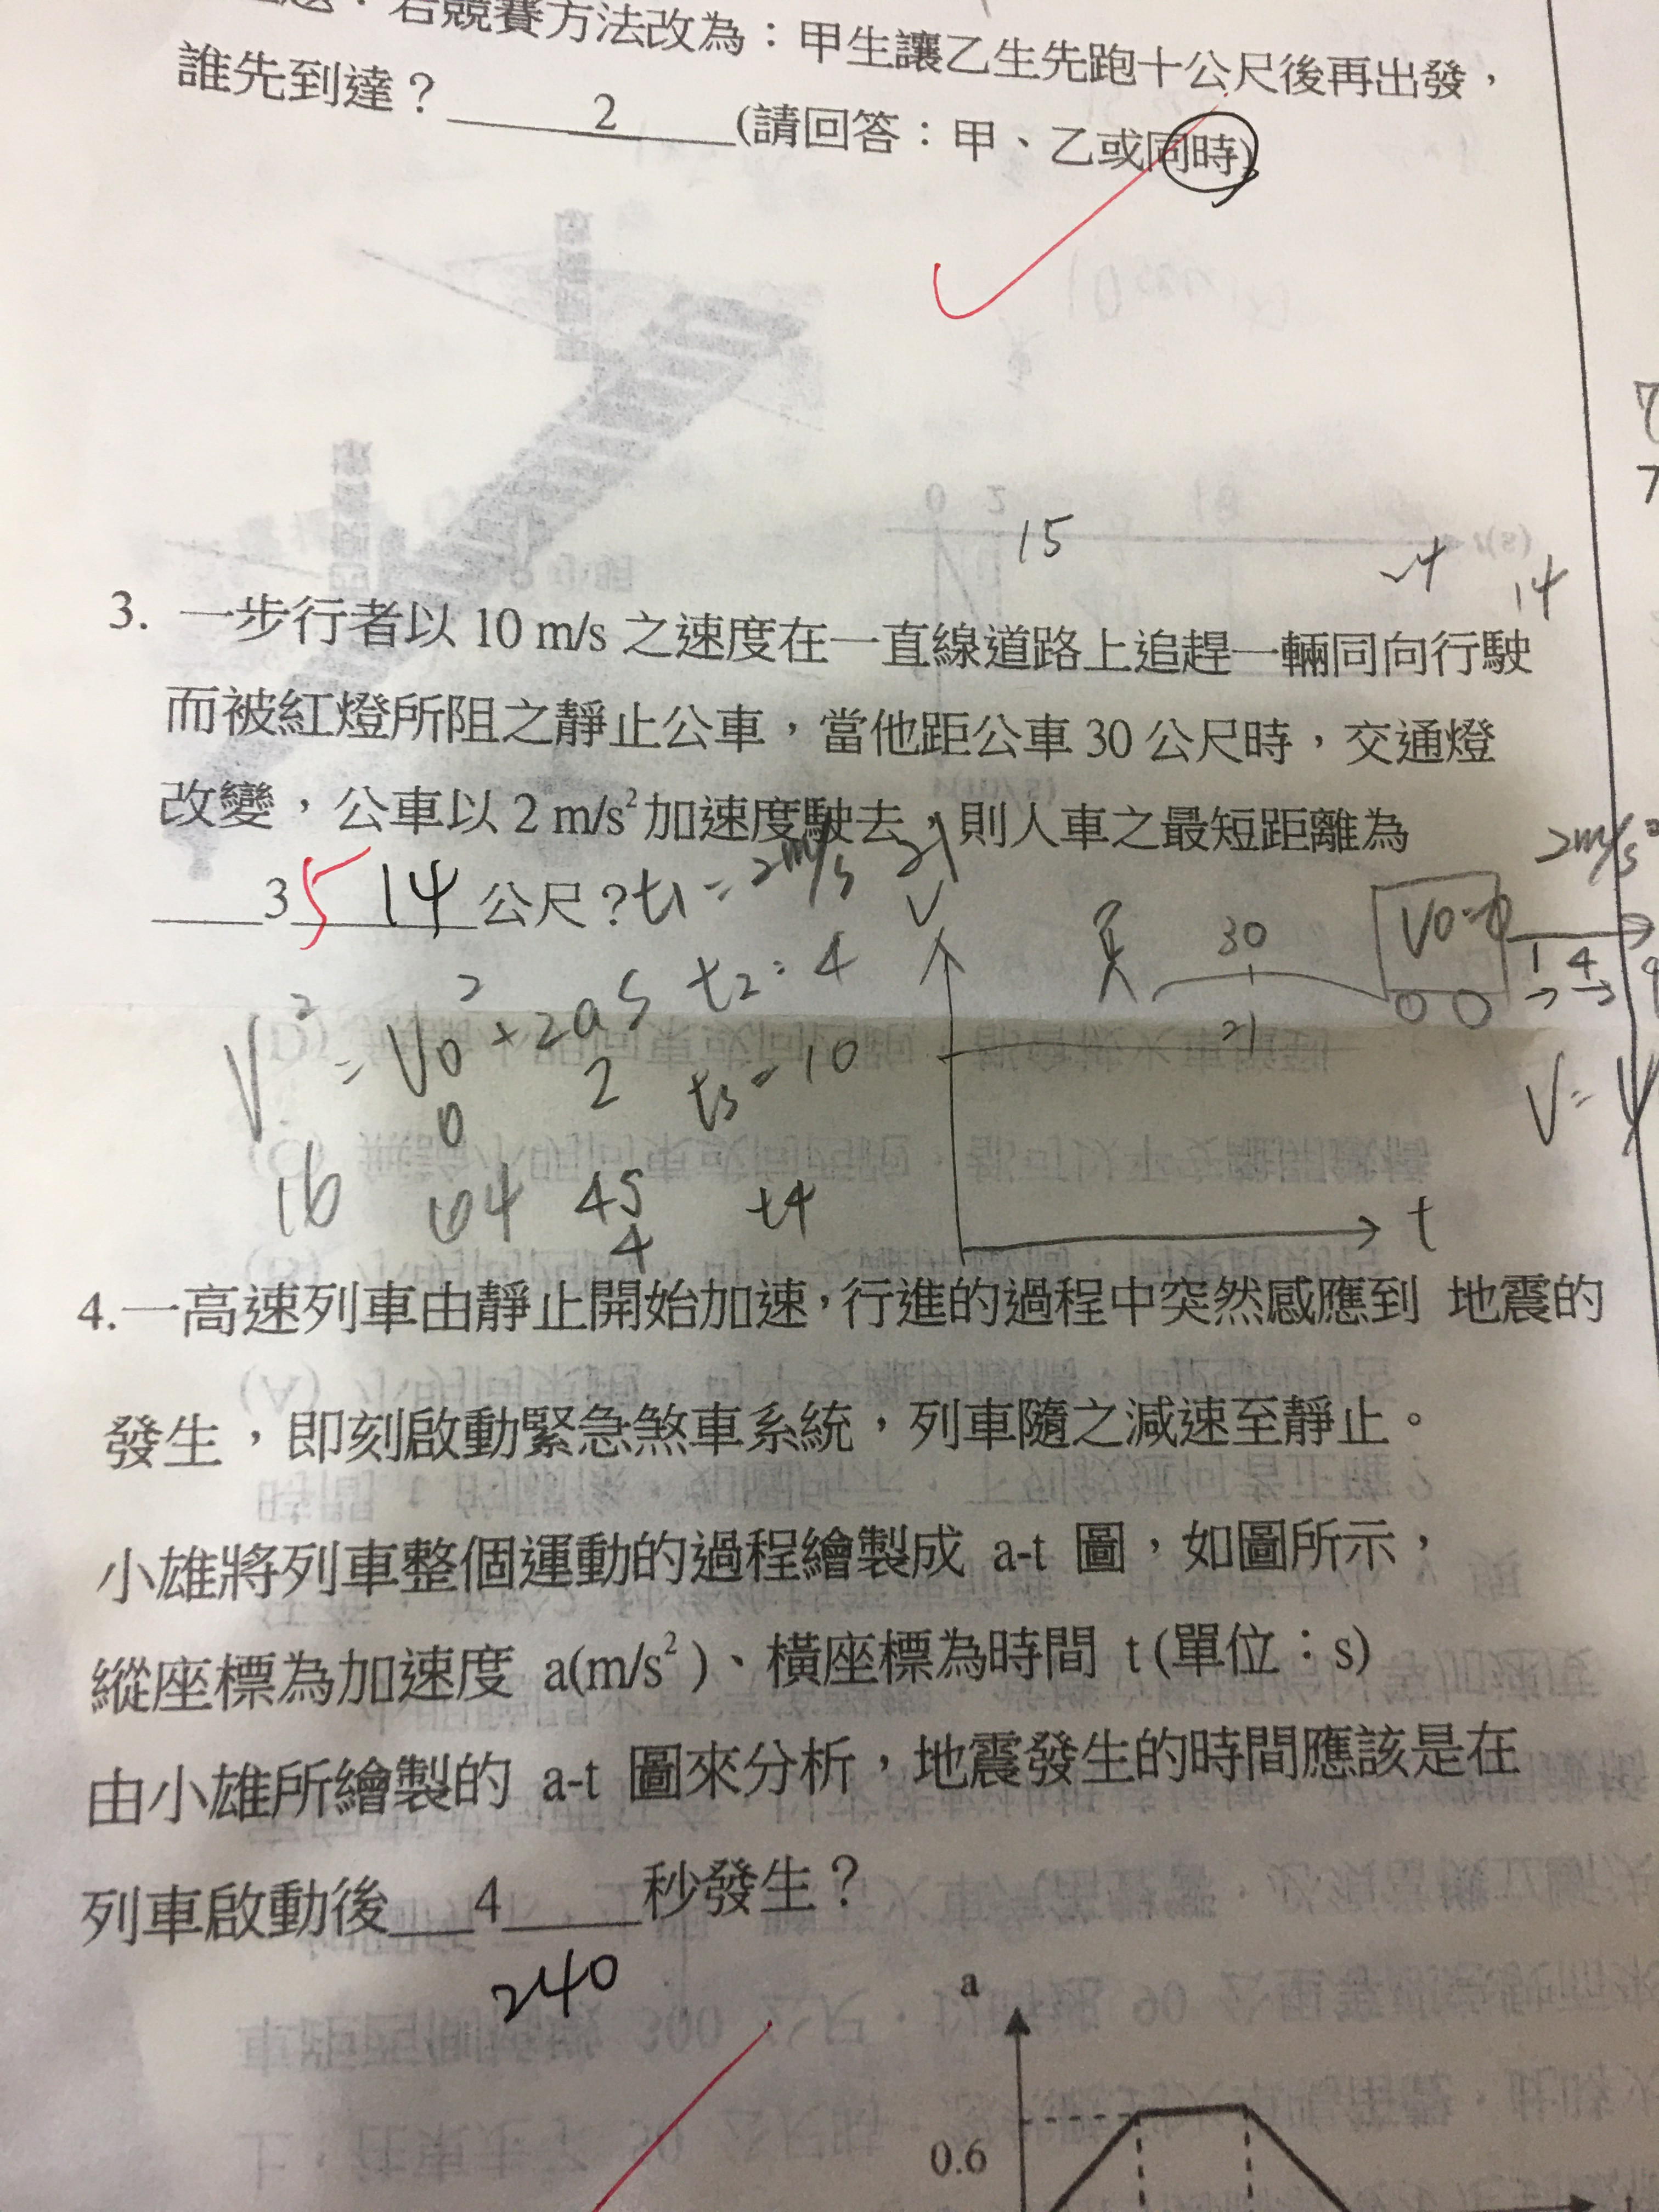 若競賽方法改為：甲生讓乙生先跑十公尺後再出發，
誰先到達？ 2 (請回答：甲、乙或同時)
15
14
3. 一步行者以 10 m/s 之速度在一直線道路上追趕一輛同向行駛
而被紅燈所阻之靜止公車，當他距公車 30 公尺時，交通燈
改變，公車以 2 m/s² 加速度駛去，則人車之最短距離為
3 5 14 公尺？
t1 = 2m/s 21
2m/s²
V² = V0² + 2aS
0 2
t2 = 4
t3 = 10
V
30
V0=0
1 4 9
21
V=
16 64 4S t4
4
t
4.一高速列車由靜止開始加速，行進的過程中突然感應到 地震的
發生，即刻啟動緊急煞車系統，列車隨之減速至靜止。
小雄將列車整個運動的過程繪製成 a-t 圖，如圖所示，
縱座標為加速度 a(m/s²)、橫座標為時間 t (單位：s)
由小雄所繪製的 a-t 圖來分析，地震發生的時間應該是在
列車啟動後 4 秒發生？
240
a
0.6